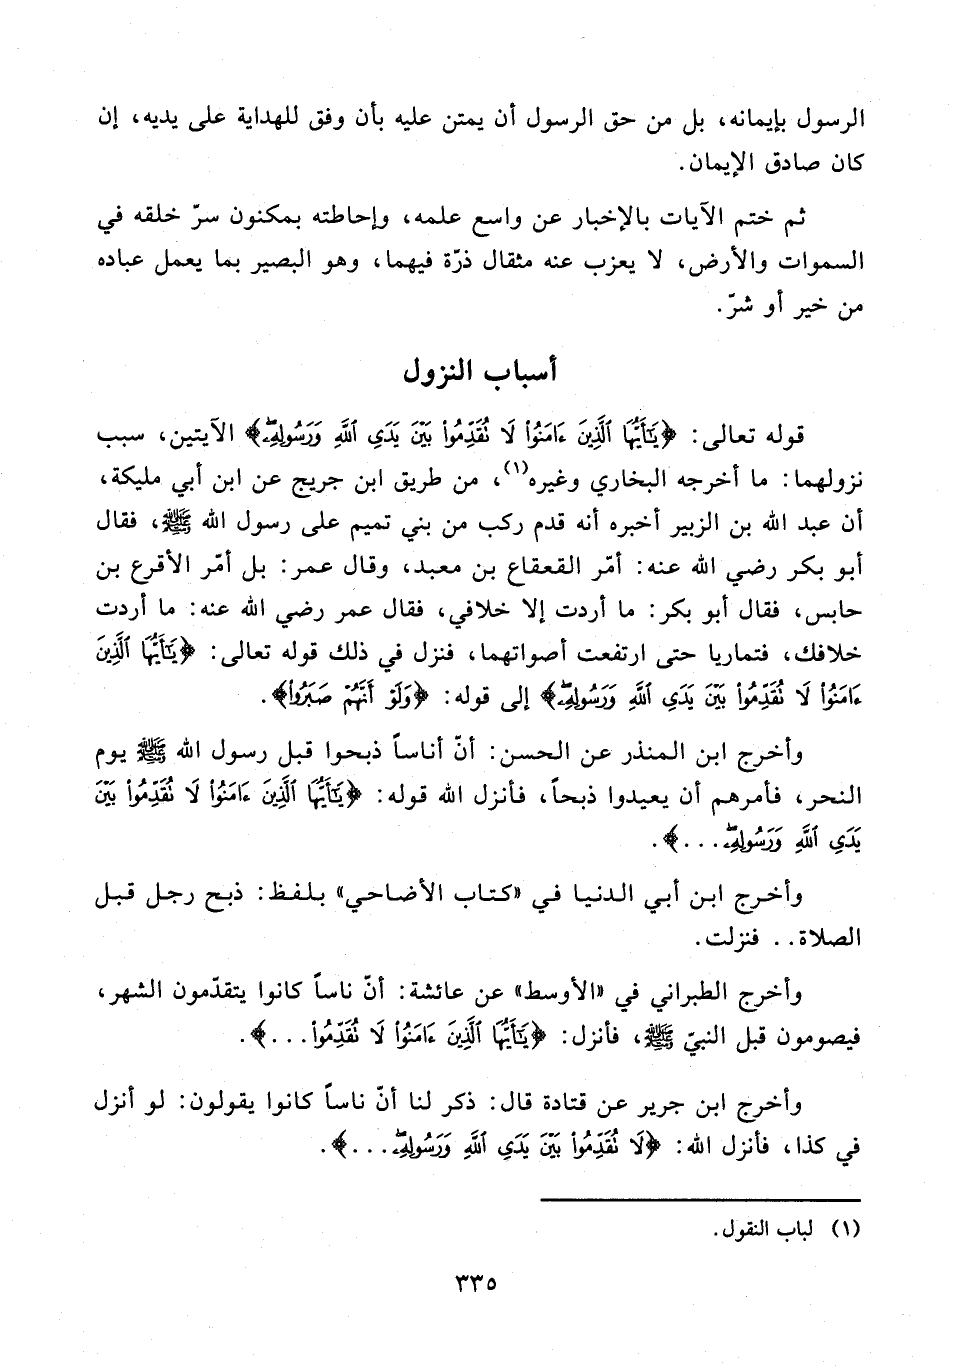 الرسول بإيمانه، بل من حق الرسول أن يمتن عليه بأن وفق للهداية على يديه، إن
كان صادق الإيمان.
ثم ختم الآيات بالإخبار عن واسع علمه، وإحاطته بمكنون سرّ خلقه في
السموات والأرض، لا يعزب عنه مثقال ذرّة فيهما، وهو البصير بما يعمل عباده
من خير أو شرّ.
أسباب النزول
قوله تعالى: ﴿يَٰٓأَيُّهَا ٱلَّذِينَ ءَامَنُوا۟ لَا تُقَدِّمُوا۟ بَيْنَ يَدَىِ ٱللَّهِ وَرَسُولِهِۦۖ﴾ الآيتين، سبب
نزولهما: ما أخرجه البخاري وغيره(١)، من طريق ابن جريج عن ابن أبي مليكة،
أن عبد الله بن الزبير أخبره أنه قدم ركب من بني تميم على رسول الله ﷺ، فقال
أبو بكر رضي الله عنه: أمّر القعقاع بن معبد، وقال عمر: بل أمّر الأقرع بن
حابس، فقال أبو بكر: ما أردت إلا خلافي، فقال عمر رضي الله عنه: ما أردت
خلافك، فتماريا حتى ارتفعت أصواتهما، فنزل في ذلك قوله تعالى: ﴿يَٰٓأَيُّهَا ٱلَّذِينَ
ءَامَنُوا۟ لَا تُقَدِّمُوا۟ بَيْنَ يَدَىِ ٱللَّهِ وَرَسُولِهِۦۖ﴾ إلى قوله: ﴿وَلَوْ أَنَّهُمْ صَبَرُوا۟﴾.
وأخرج ابن المنذر عن الحسن: أنّ أناساً ذبحوا قبل رسول الله ﷺ يوم
النحر، فأمرهم أن يعيدوا ذبحاً، فأنزل الله قوله: ﴿يَٰٓأَيُّهَا ٱلَّذِينَ ءَامَنُوا۟ لَا تُقَدِّمُوا۟ بَيْنَ
يَدَىِ ٱللَّهِ وَرَسُولِهِۦۖ...﴾.
وأخرج ابن أبي الدنيا في «كتاب الأضاحي» بلفظ: ذبح رجل قبل
الصلاة.. فنزلت.
وأخرج الطبراني في «الأوسط» عن عائشة: أنّ ناساً كانوا يتقدّمون الشهر،
فيصومون قبل النبيّ ﷺ، فأنزل: ﴿يَٰٓأَيُّهَا ٱلَّذِينَ ءَامَنُوا۟ لَا تُقَدِّمُوا۟...﴾.
وأخرج ابن جرير عن قتادة قال: ذكر لنا أنّ ناساً كانوا يقولون: لو أنزل
في كذا، فأنزل الله: ﴿لَا تُقَدِّمُوا۟ بَيْنَ يَدَىِ ٱللَّهِ وَرَسُولِهِۦۖ...﴾.
(١) لباب النقول.
٣٣٥